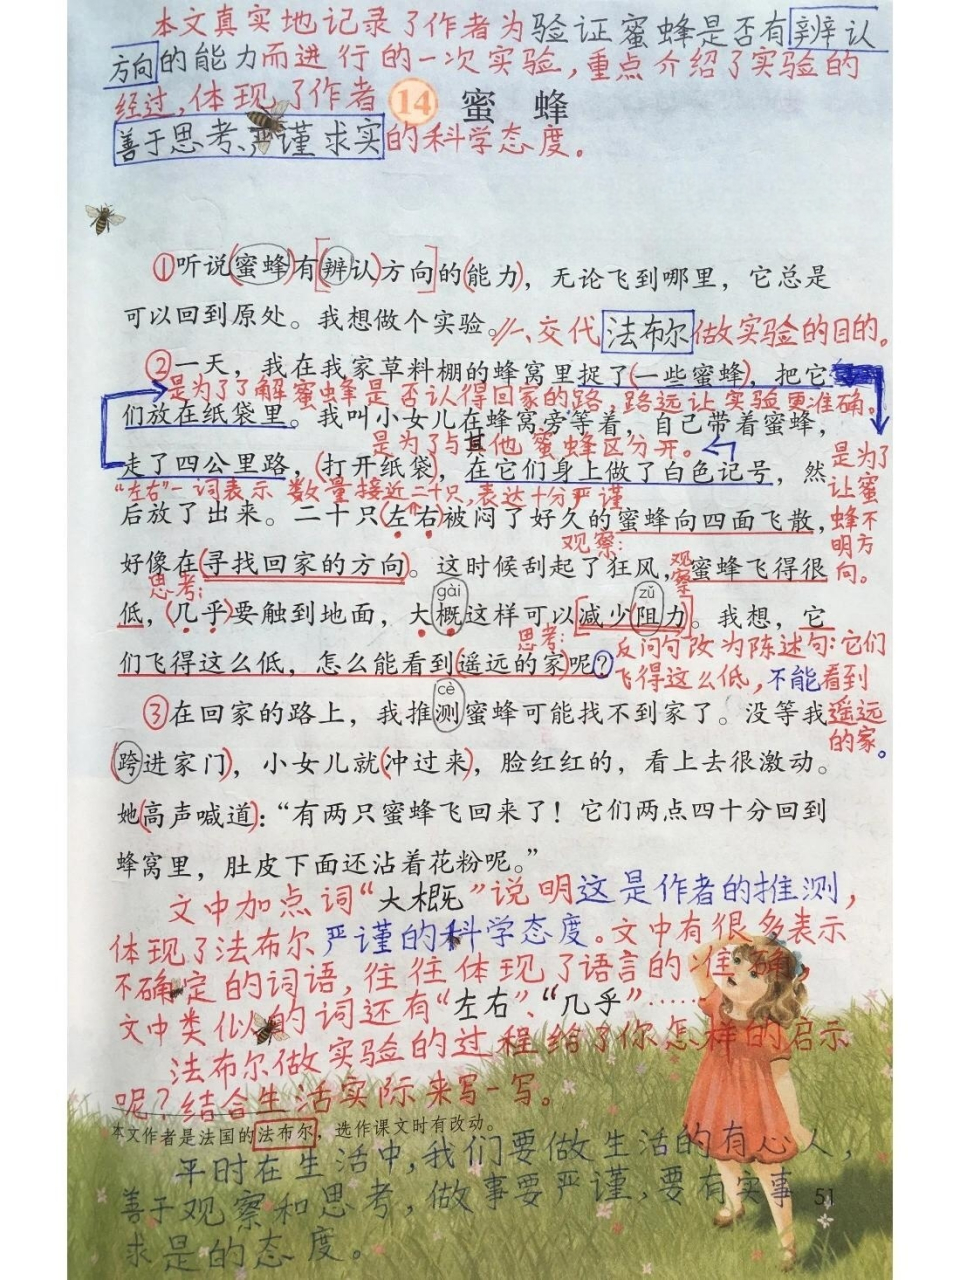 本文真实地记录了作者为验证蜜蜂是否有辨认
方向的能力而进行的一次实验，重点介绍了实验的
经过，体现了作者
14 蜜蜂
善于思考、严谨求实的科学态度。
①听说蜜蜂有[辨认方向]的能力，无论飞到哪里，它总是
可以回到原处。我想做个实验。//一.交代法布尔做实验的目的。
②一天，我在我家草料棚的蜂窝里捉了一些蜜蜂，把它
是为了了解蜜蜂是否认得回家的路，路远让实验更准确。
们放在纸袋里。我叫小女儿在蜂窝旁等着，自己带着蜜蜂，
是为了与其他蜜蜂区分开。
走了四公里路，打开纸袋，在它们身上做了白色记号，然
是为了
让蜜
蜂不
明方
向。
"左右"一词表示数量接近二十只，表达十分严谨
后放了出来。二十只左右被闷了好久的蜜蜂向四面飞散，
观察：
好像在寻找回家的方向。这时候刮起了狂风，蜜蜂飞得很
观察
思考：
gài
zǔ
低，几乎要触到地面，大概这样可以减少阻力。我想，它
思考：
反问句改为陈述句：它们
们飞得这么低，怎么能看到遥远的家呢？
飞得这么低，不能看到
遥远
的家。
cè
③在回家的路上，我推测蜜蜂可能找不到家了。没等我
跨进家门，小女儿就冲过来，脸红红的，看上去很激动。
她高声喊道：“有两只蜜蜂飞回来了！它们两点四十分回到
蜂窝里，肚皮下面还沾着花粉呢。”
文中加点词“大概”说明这是作者的推测，
体现了法布尔严谨的科学态度。文中有很多表示
不确定的词语，往往体现了语言的准确，
文中类似的词还有“左右”、“几乎”……
法布尔做实验的过程给了你怎样的启示
呢？结合生活实际来写一写。
本文作者是法国的法布尔，选作课文时有改动。
平时在生活中，我们要做生活的有心人，
善于观察和思考，做事要严谨，要有实事
51
求是的态度。